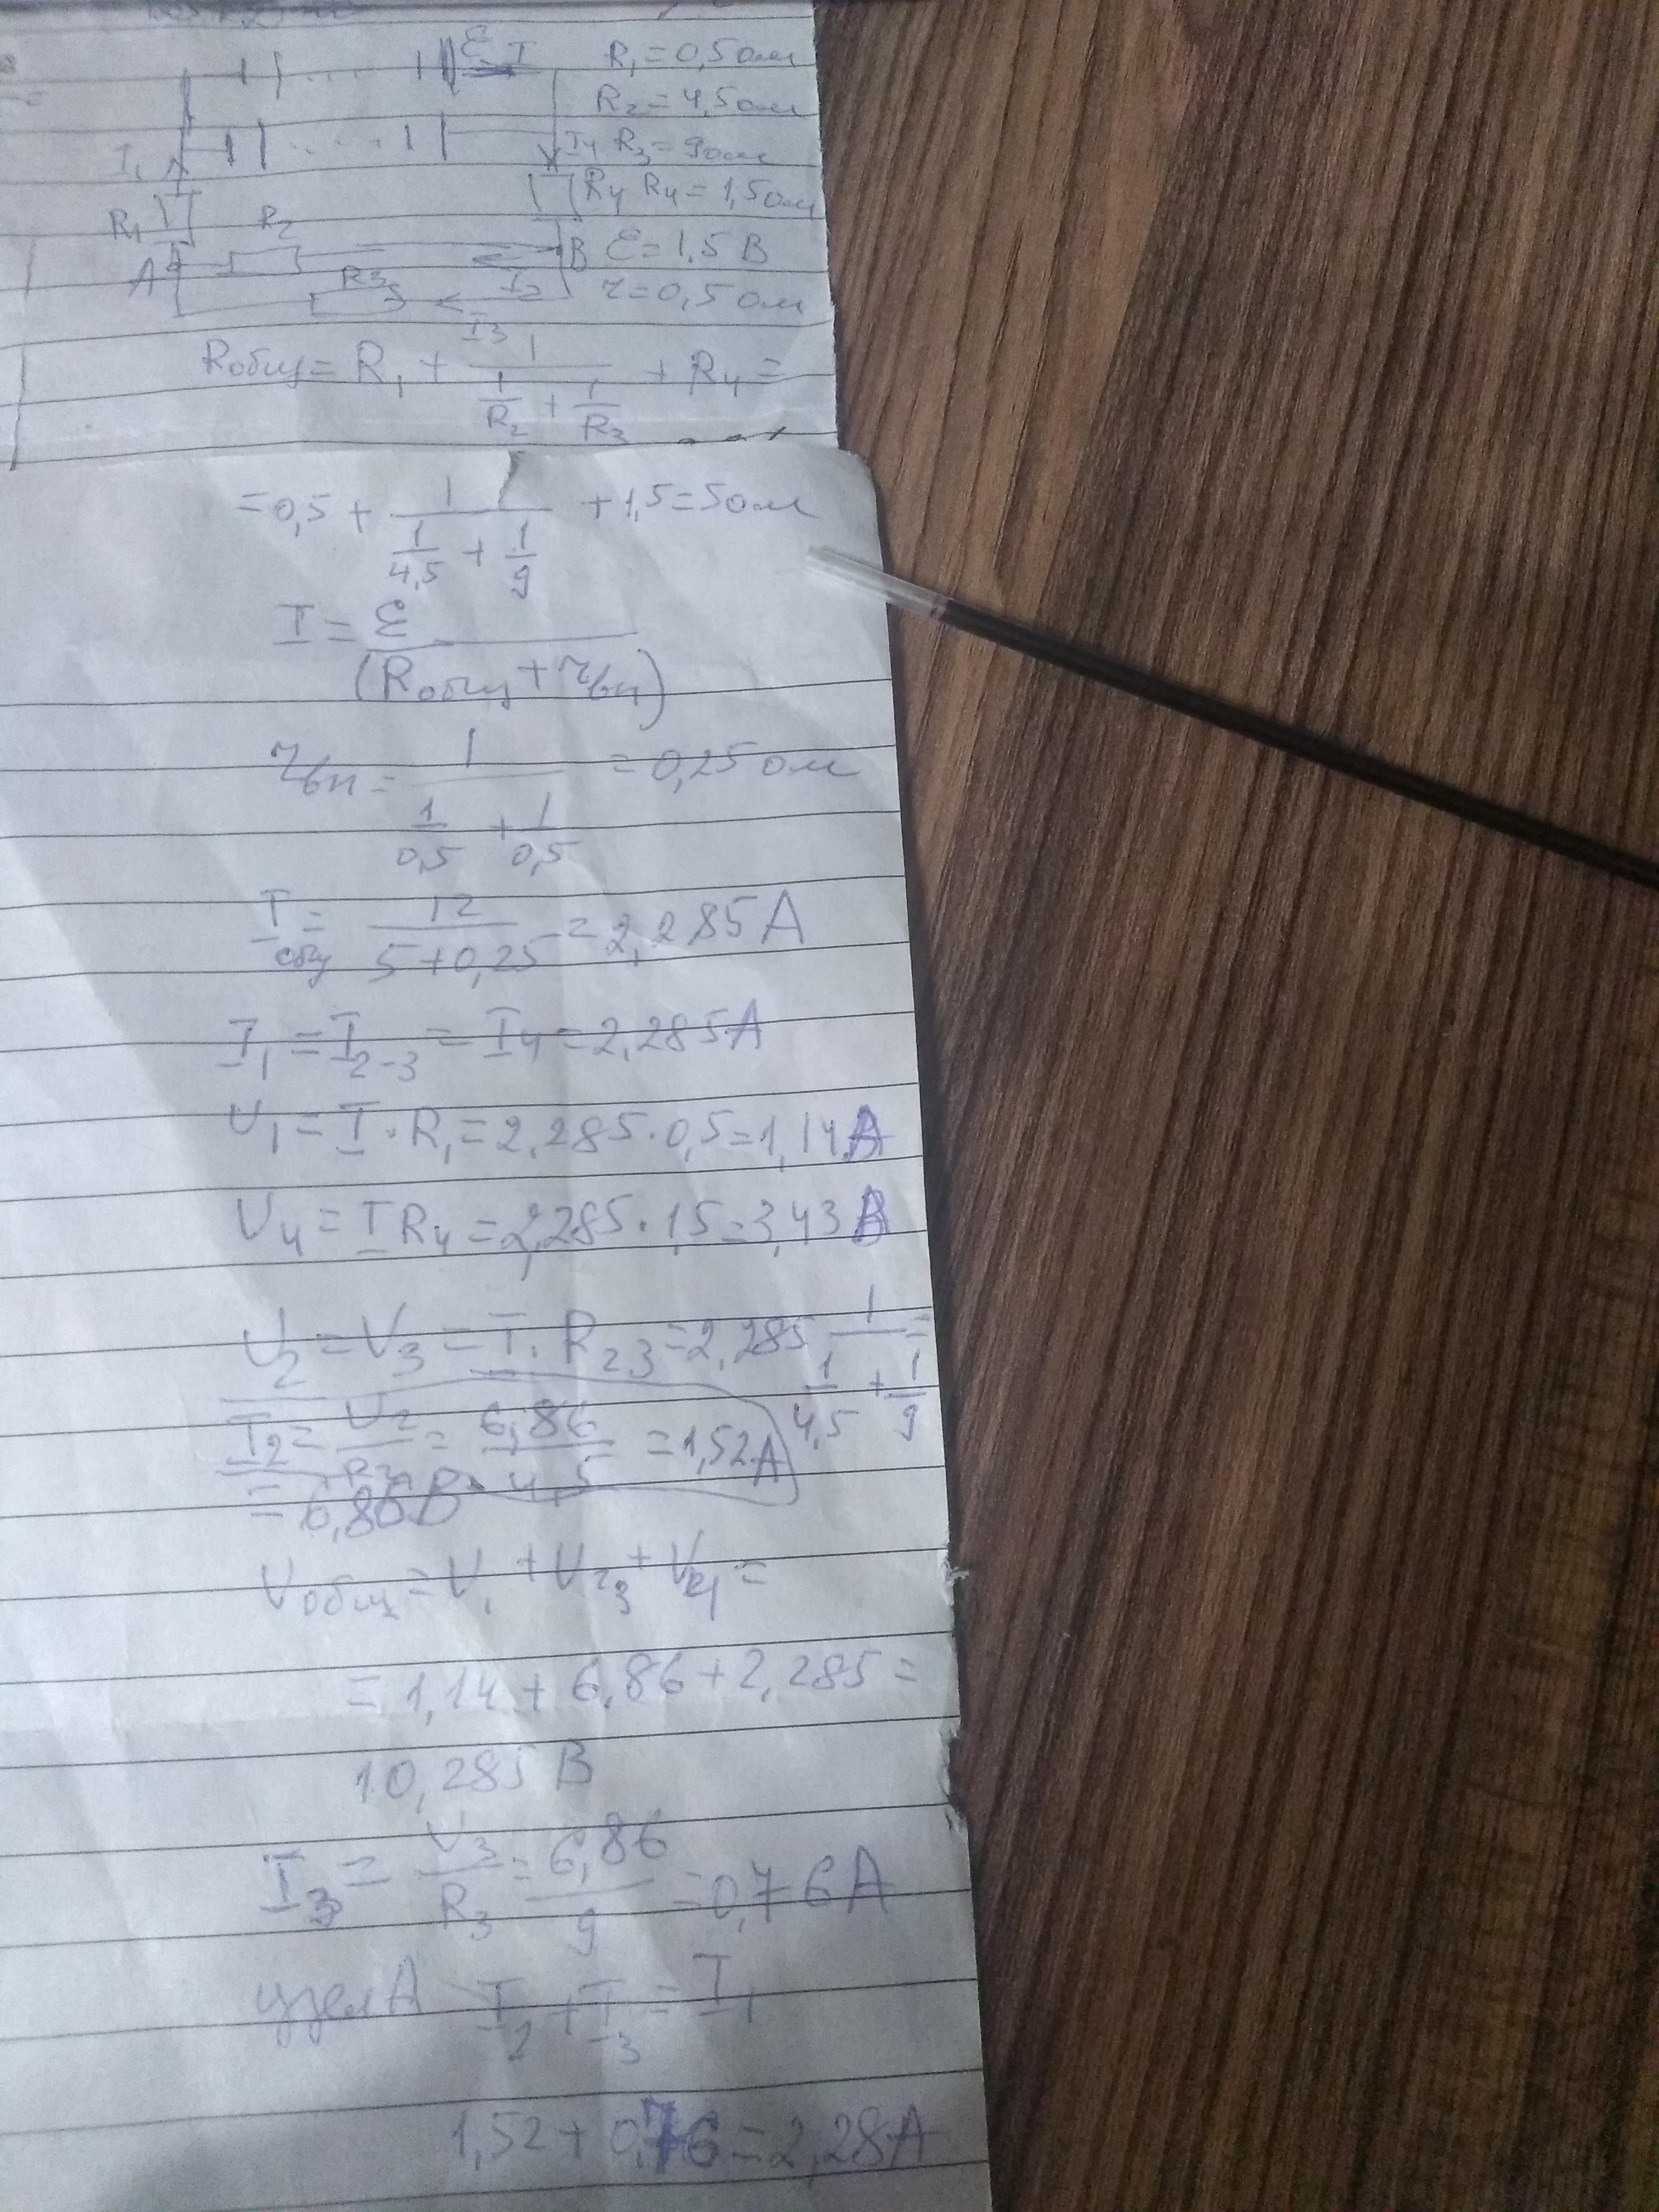 ℰ I R₁=0,5 ом
R₂=4,5 ом
I₁ I₄ R₃=9 ом
R₄ R₄=1,5 ом
R₁ R₂
A B ℰ=1,5 В
R₃ I₂ r=0,5 ом
I₃
Rобщ = R₁ + 1/(1/R₂ + 1/R₃) + R₄ =
= 0,5 + 1/(1/4,5 + 1/9) + 1,5 = 5 ом
I = ℰ/(Rобщ + rвн)
rвн = 1/(1/0,5 + 1/0,5) = 0,25 ом
Iобщ = 12/(5+0,25) = 2,285 А
I₁ = I₂₋₃ = I₄ = 2,285 А
U₁ = I · R₁ = 2,285 · 0,5 = 1,14 В
U₄ = I R₄ = 2,285 · 1,5 = 3,43 В
U₂ = U₃ = I · R₂₃ = 2,285 1/(1/4,5 + 1/9) =
I₂ = U₂/R₂ = 6,86/4,5 = 1,52 А
= 6,86 В
Uобщ = U₁ + U₂₃ + U₄ =
= 1,14 + 6,86 + 2,285 =
10,285 В
I₃ = U₃/R₃ = 6,86/9 = 0,76 А
узел А I₂ + I₃ = I₁
1,52 + 0,76 = 2,28 А